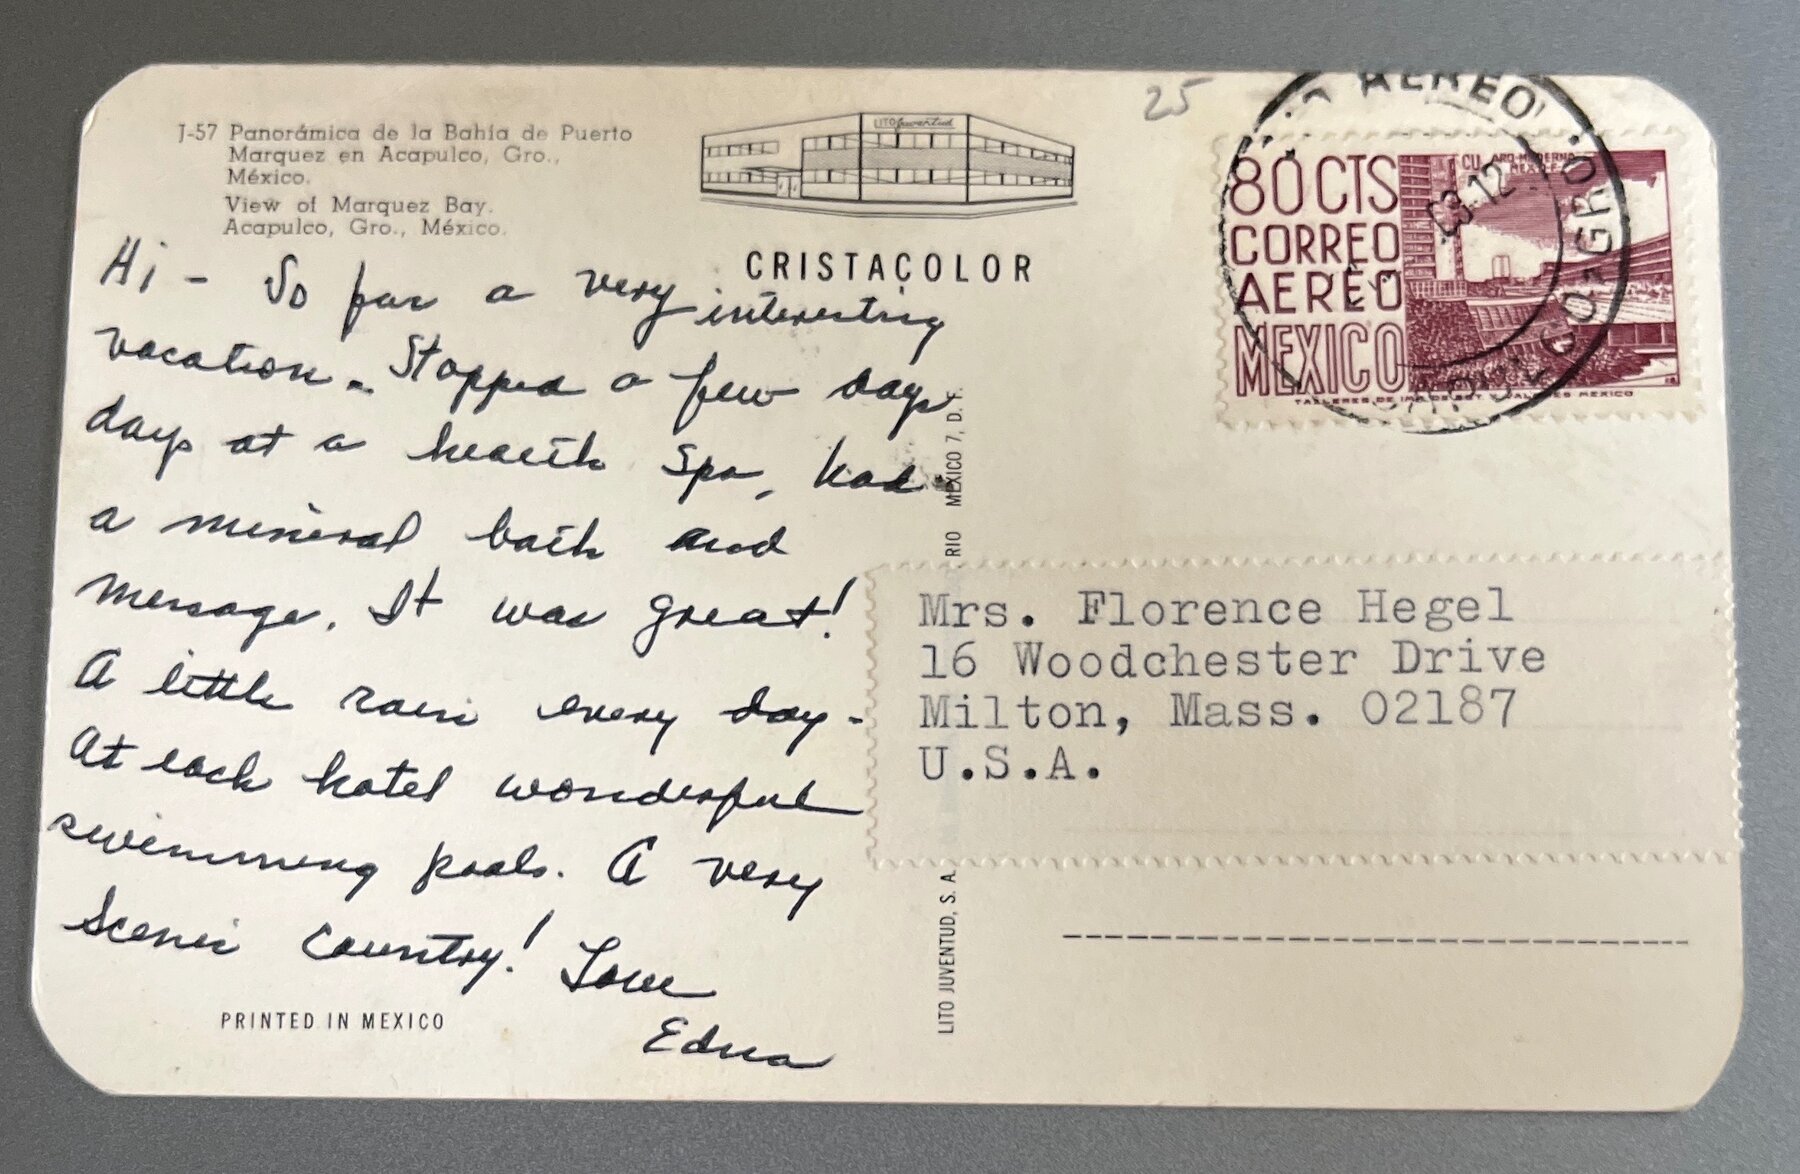 J-57 Panorámica de la Bahía de Puerto
Marquez en Acapulco, Gro.,
México.
View of Marquez Bay.
Acapulco, Gro., México.
LITO Juventud
CRISTACOLOR
25
Hi - So far a very interesting
vacation. Stopped a few days
days at a health Spa, had
a mineral bath and
message. It was great!
A little rain every day -
At each hotel wonderful
swimming pools. A very
Scenic Country! Love
Edna
PRINTED IN MEXICO
LITO JUVENTUD, S. A.
RIO
MEXICO 7, D. F.
80 CTS
CORREO
AEREO
MEXICO
CU. ARQ. MODERNA
MEXICO D.F.
AEREO
GRO.
Mrs. Florence Hegel
16 Woodchester Drive
Milton, Mass. 02187
U.S.A.